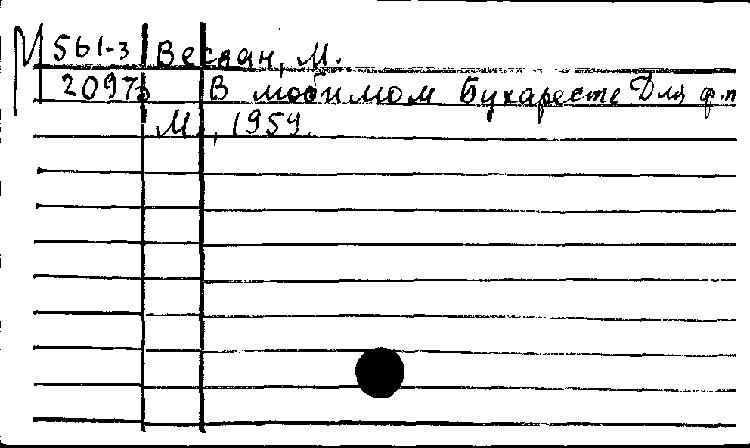 М 561-3 Веслан, М.
2097 В любимом Бухаресте Для ф.п
М., 1959.